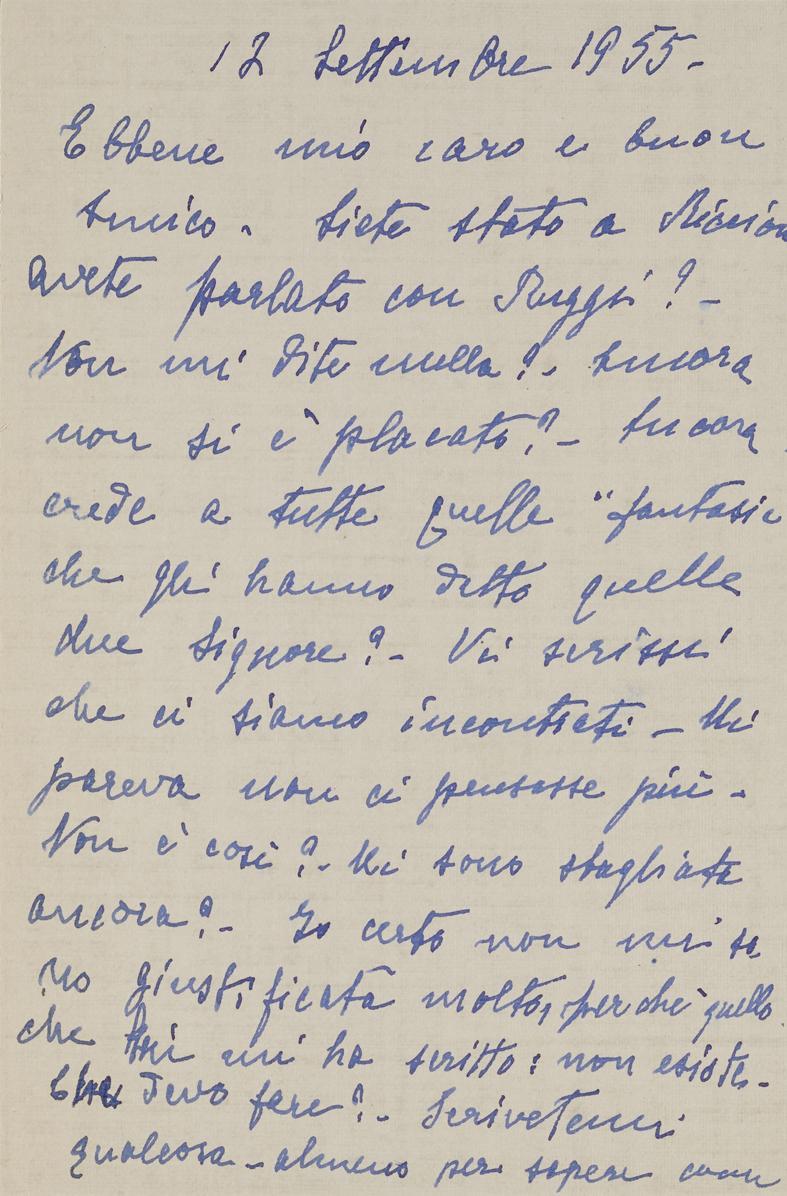 12 Settembre 1955-
Ebbene mio caro e buon
Amico. Siete stato a Riccion
avete parlato con Ruggi?-
Non mi dite nulla?- Ancora
non si è placato?- Ancora
crede a tutte quelle "fantasie
che gli hanno detto quelle
due Signore?- Vi scrissi
che ci siamo incontrati - Mi
pareva non ci pensasse più -
Non è così?- Mi sono sbagliata
ancora?- Io certo non mi so
no giustificata molto, perchè quello
che mi ha scritto: non esiste-
Che devo fare?- Scrivetemi
qualcosa - almeno per sapere com